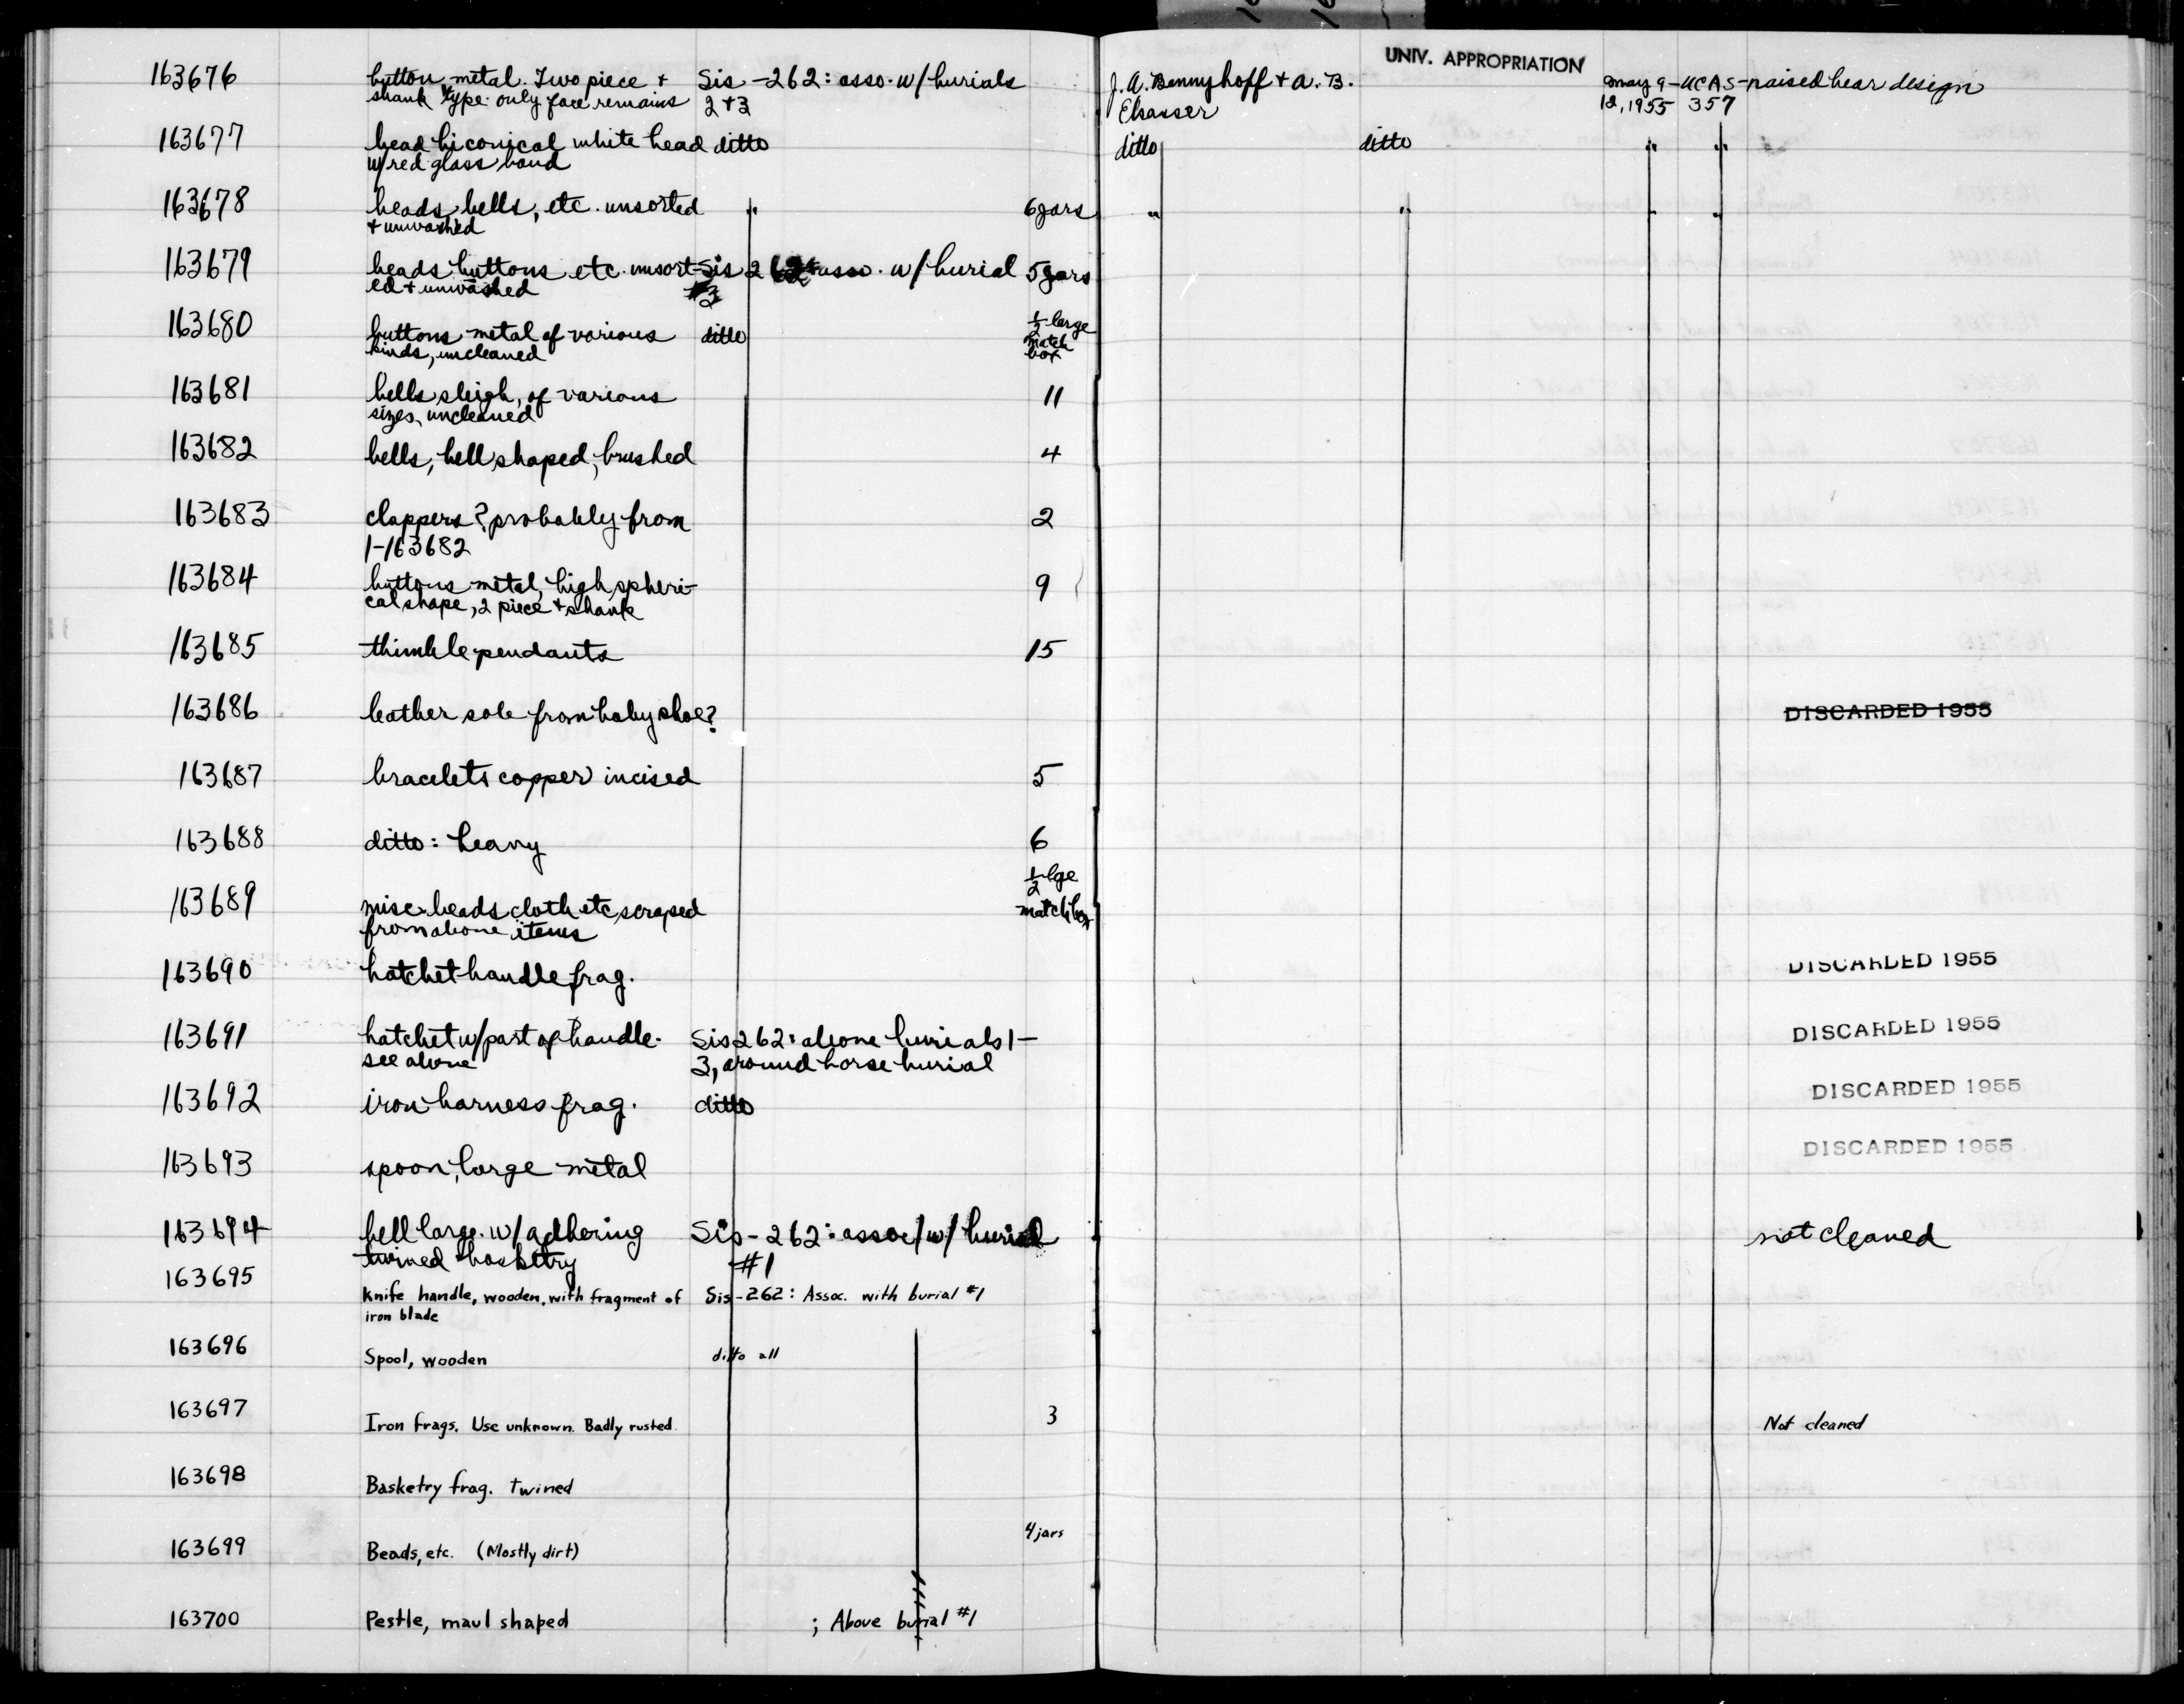 UNIV. APPROPRIATION
163676 button metal. Two piece + Sis-262: asso. w/burials J.A. Bennyhoff + A.B. May 9- UCAS- raised bear design
shank type. only face remains 2+3 Elsasser 12, 1955 357
163677 bead biconical white bead ditto ditto ditto " "
w/red glass band
163678 beads, bells, etc. unsorted " 6 jars " " " "
+ unwashed
163679 beads buttons etc. unsort- Sis 262: asso. w/burial 5 jars
ed + unwashed #3
163680 buttons metal of various ditto 1/2 large
kinds, uncleaned match
box
163681 bells sleigh, of various 11
sizes, uncleaned
163682 bells, bell shaped, brushed 4
163683 clappers? probably from 2
1-163682
163684 buttons metal, high spheri- 9
cal shape, 2 piece + shank
163685 thimble pendants 15
163686 leather sole from baby shoe? DISCARDED 1955
163687 bracelets copper incised 5
163688 ditto: heavy 6
1/2 lge
163689 misc beads cloth etc. scraped matchbox
from above items
163690 hatchet handle frag. DISCARDED 1955
163691 hatchet w/part of handle. Sis 262: above burials 1- DISCARDED 1955
see above 3, around horse burial
163692 iron harness frag. ditto DISCARDED 1955
163693 spoon, large metal DISCARDED 1955
163694 bell large. w/adhering Sis-262: assoc/w/burial not cleaned
twined basketry #1
163695 Knife handle, wooden, with fragment of Sis-262: Assoc. with burial #1
iron blade
163696 Spool, wooden ditto all
163697 Iron frags. Use unknown. Badly rusted. 3 Not cleaned
163698 Basketry frag. twined
4 jars
163699 Beads, etc. (Mostly dirt)
163700 Pestle, maul shaped ; Above burial #1